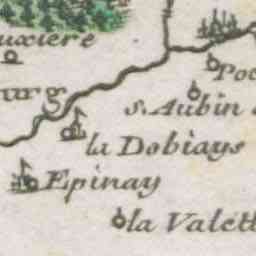 uxiere
Poc
urg
S. Aubin
la Dobiays
Epinay
la Valett